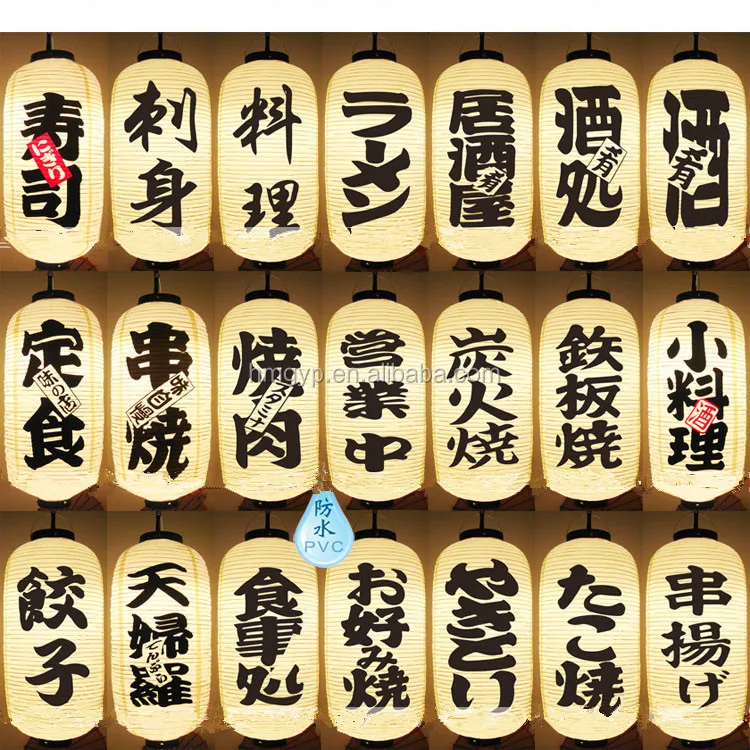 寿司
にぎり
刺身
料理
ラーメン
居酒屋
肴
酒処
肴
酒
肴
定食
味の街
串焼
味自慢
焼肉
スタミナ
営業中
炭火焼
鉄板焼
小料理
酒
hmqyp.en.alibaba.com
餃子
天婦羅
てんぷら
食事処
お好み焼
やきとり
たこ焼
串揚げ
防水
PVC